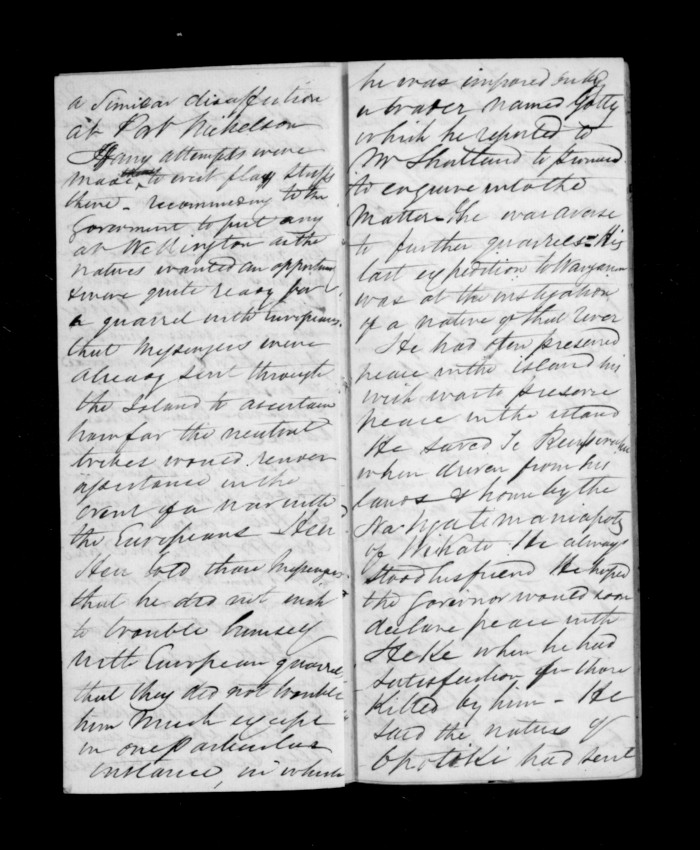 a Similar disaffection
at Port Nichelson
If any attempts were
made to erect flag staffs
there - recommending to the
Goverment to put any
at Wellington as the
natives wanted an opportuni
& were quite ready for
a quarrel with Europeans.
that Mesengers were
already sent through
the Island to ascertain
how far the neutral
tribes would render
assistance in the
event of a war with
the Europeans Heu
Heu told those Messengers
that he did not wish
to trouble himself
with European quarrel
that they did not trouble
him Much except
in one particular
instance, in which
he was imposed on by
a trader named Gotty
which he reported to
Mr Shortland to
to enquire into the
Matter - He was averse
to further quarrels - His
last expedition to Wanganui
was at the instigation
of a native of that River
He had often preserved
peace in the island his
wish was to preserve
peace in the island
He saved Te
when driven from his
lands & home by the
Na Ngatimaniapoto
of Wikato He always
stood his friend He hoped
the Governor would soon
declare peace with
Heke when he had
satisfaction for those
Killed by him - He
said the natives of
Opotiki had sent